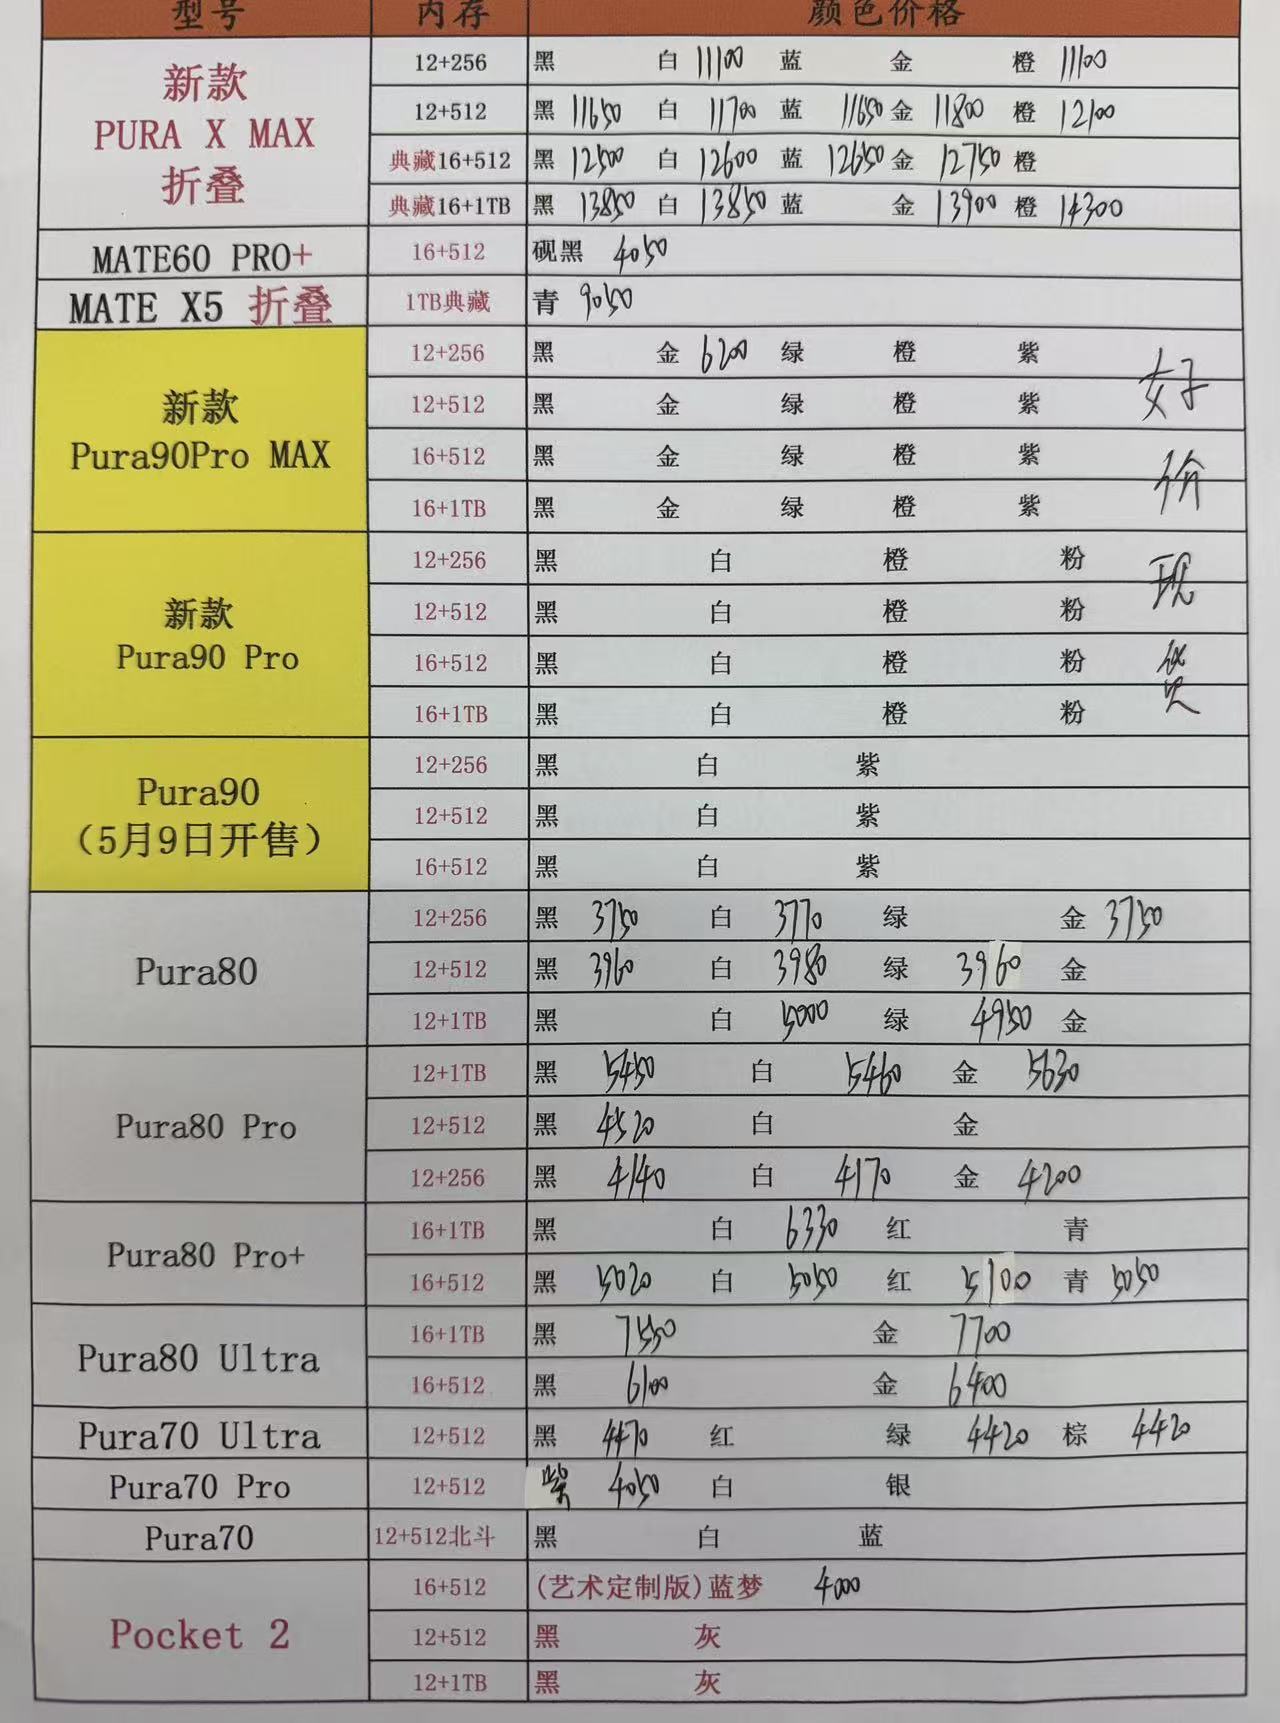 型号 内存 颜色价格
新款 PURA X MAX 折叠
12+256 黑 白 11100 蓝 金 橙 11100
12+512 黑 11650 白 11700 蓝 11650 金 11800 橙 12100
典藏16+512 黑 12500 白 12600 蓝 12650 金 12750 橙
典藏16+1TB 黑 13850 白 13850 蓝 金 13900 橙 14300
MATE60 PRO+ 16+512 砚黑 4050
MATE X5 折叠 1TB典藏 青 9050
新款 Pura90Pro MAX
12+256 黑 金 6200 绿 橙 紫
12+512 黑 金 绿 橙 紫
16+512 黑 金 绿 橙 紫
16+1TB 黑 金 绿 橙 紫
好
价
现
货
新款 Pura90 Pro
12+256 黑 白 橙 粉
12+512 黑 白 橙 粉
16+512 黑 白 橙 粉
16+1TB 黑 白 橙 粉
Pura90
（5月9日开售）
12+256 黑 白 紫
12+512 黑 白 紫
16+512 黑 白 紫
Pura80
12+256 黑 3750 白 3770 绿 金 3750
12+512 黑 3960 白 3980 绿 3960 金
12+1TB 黑 白 5000 绿 4950 金
Pura80 Pro
12+1TB 黑 5450 白 5460 金 5630
12+512 黑 4520 白 金
12+256 黑 4140 白 4170 金 4200
Pura80 Pro+
16+1TB 黑 白 6330 红 青
16+512 黑 5020 白 5050 红 5100 青 5050
Pura80 Ultra
16+1TB 黑 7550 金 7700
16+512 黑 6100 金 6400
Pura70 Ultra 12+512 黑 4470 红 绿 4420 棕 4420
Pura70 Pro 12+512 紫 4050 白 银
Pura70 12+512北斗 黑 白 蓝
Pocket 2
16+512 (艺术定制版)蓝梦 4000
12+512 黑 灰
12+1TB 黑 灰